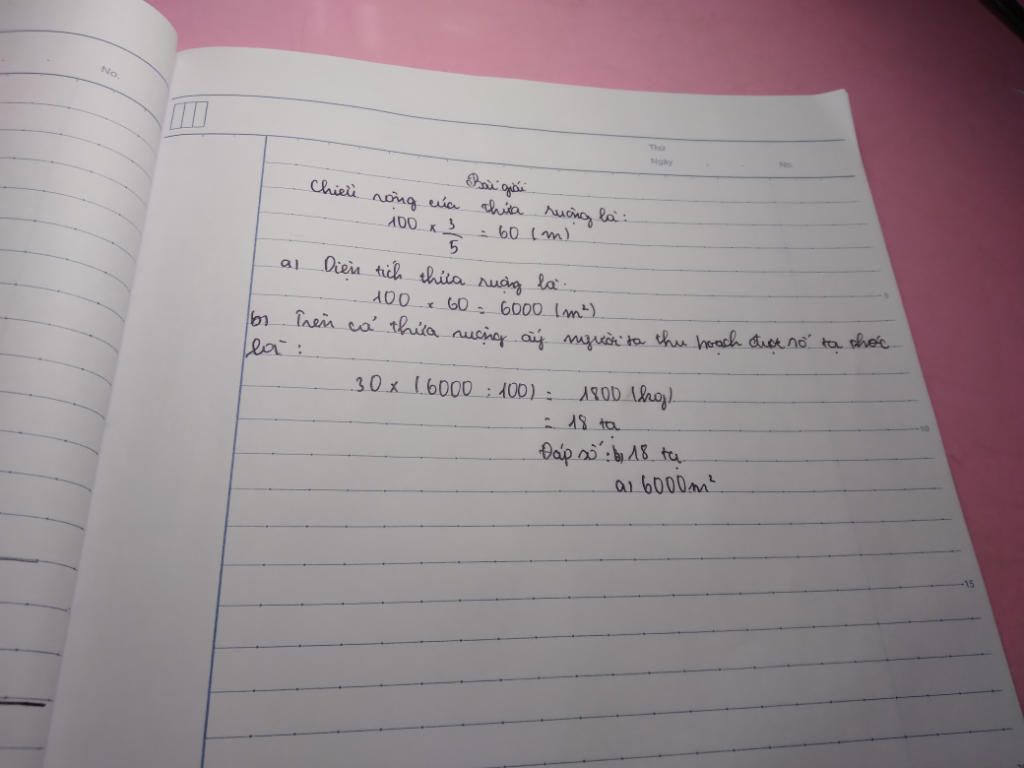 No.
Thứ
Ngày . . No.
Bài giải
Chiều rộng của thửa ruộng là:
100 × 3/5 = 60 (m)
a) Diện tích thửa ruộng là:
100 × 60 = 6000 (m²)
b) Trên cả thửa ruộng ấy người ta thu hoạch được số tạ thóc
là:
30 × (6000 : 100) = 1800 (kg)
= 18 tạ
Đáp số: b) 18 tạ
a) 6000m²
5
10
15